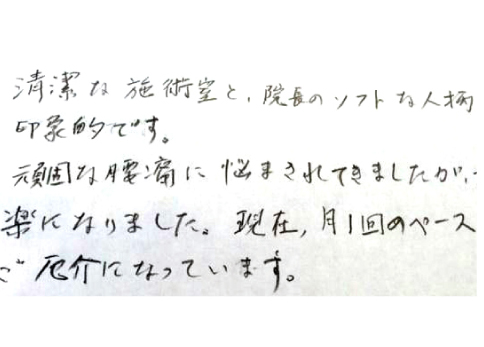 清潔な施術室と、院長のソフトな人柄
印象的です。
頑固な腰痛に悩まされてきましたが、
楽になりました。現在、月1回のペース
ご厄介になっています。